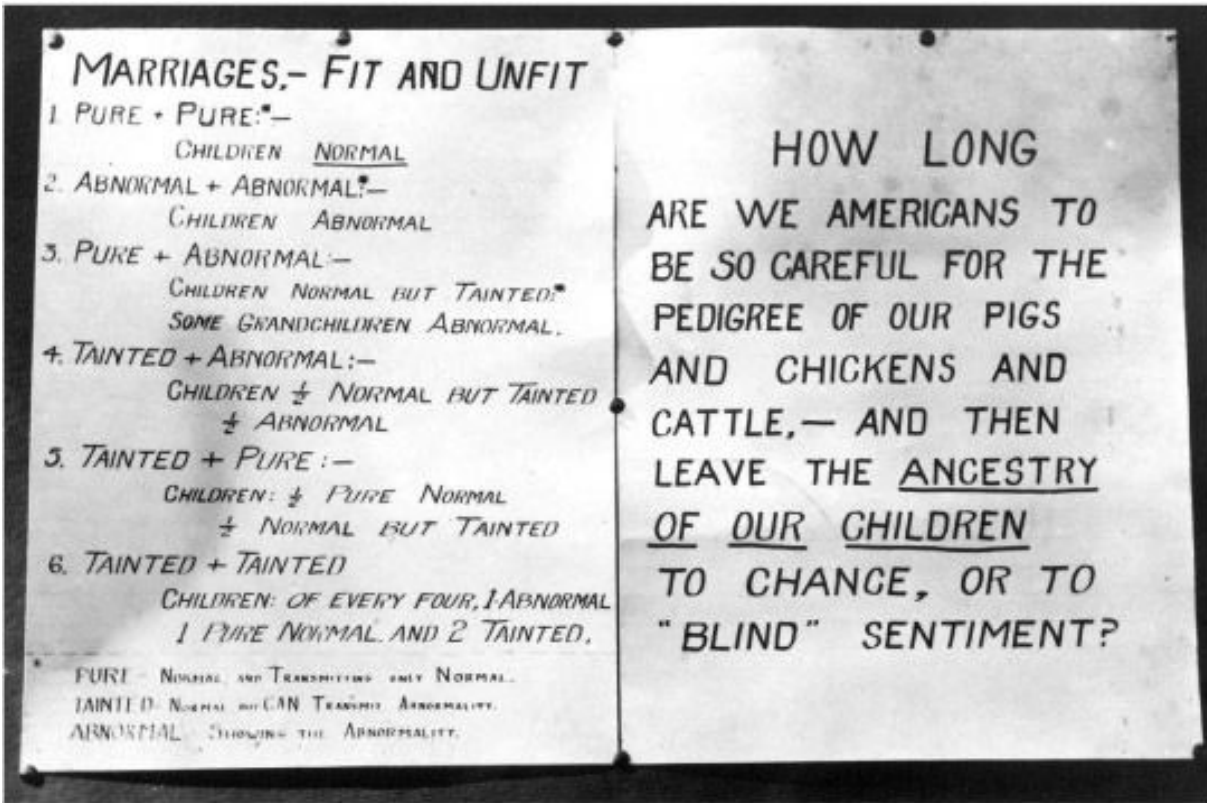 MARRIAGES,- FIT AND UNFIT
1. PURE + PURE:*-
CHILDREN NORMAL
2. ABNORMAL + ABNORMAL:*-
CHILDREN ABNORMAL
3. PURE + ABNORMAL:-
CHILDREN NORMAL BUT TAINTED:*
SOME GRANDCHILDREN ABNORMAL.
4. TAINTED + ABNORMAL:-
CHILDREN ½ NORMAL BUT TAINTED
½ ABNORMAL
5. TAINTED + PURE:-
CHILDREN: ½ PURE NORMAL
½ NORMAL BUT TAINTED
6. TAINTED + TAINTED
CHILDREN: OF EVERY FOUR, 1 ABNORMAL
1 PURE NORMAL AND 2 TAINTED.
* PURE - NORMAL AND TRANSMITTING ONLY NORMAL.
TAINTED - NORMAL BUT CAN TRANSMIT ABNORMALITY.
ABNORMAL - SHOWING THE ABNORMALITY.
HOW LONG
ARE WE AMERICANS TO
BE SO CAREFUL FOR THE
PEDIGREE OF OUR PIGS
AND CHICKENS AND
CATTLE,— AND THEN
LEAVE THE ANCESTRY
OF OUR CHILDREN
TO CHANCE, OR TO
"BLIND" SENTIMENT?